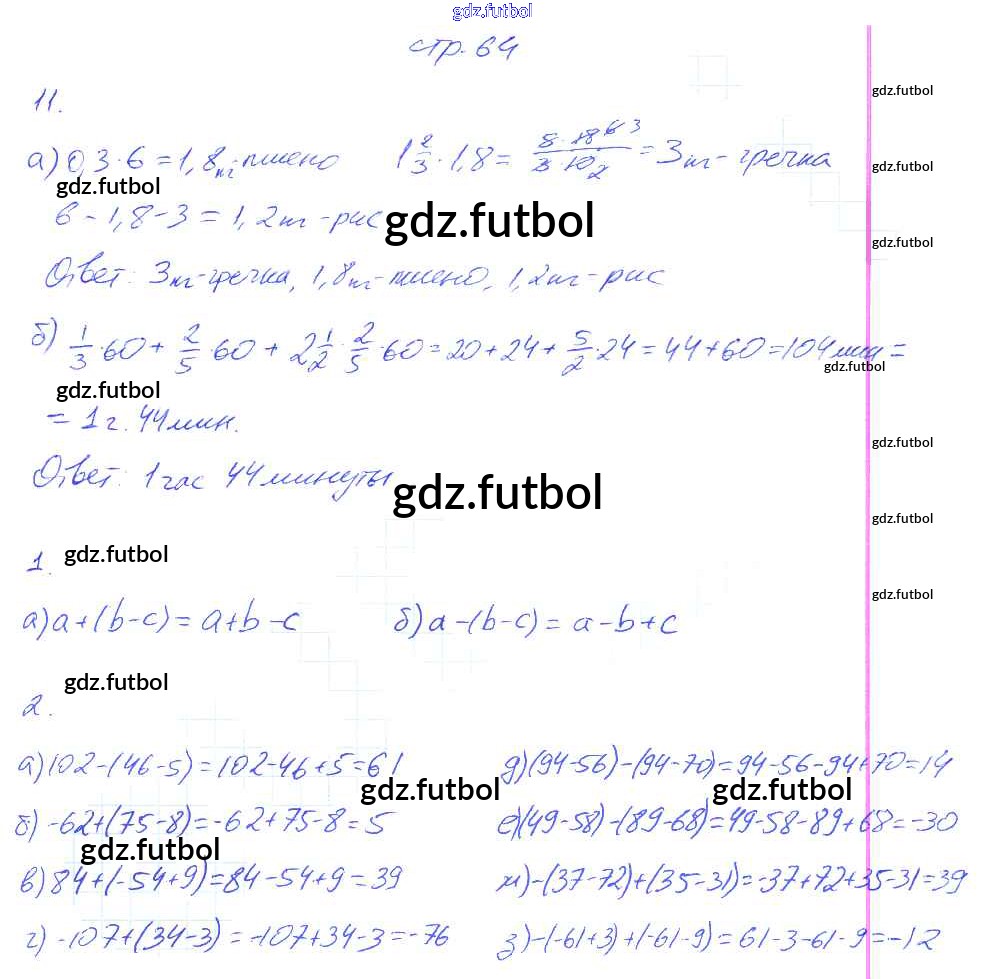 gdz.futbol
стр. 64
gdz.futbol
11.
а) 0,3·6 = 1,8кг-пшено 1 2/3 · 1,8 = 5·18 6 3 / 3·10 2 = 3кг-гречка
gdz.futbol gdz.futbol
6 - 1,8 - 3 = 1,2кг-рис gdz.futbol gdz.futbol
Ответ: 3кг-гречка, 1,8кг-пшено, 1,2кг-рис
б) 1/3 · 60 + 2/5 · 60 + 2 1/2 · 2/5 · 60 = 20 + 24 + 5/2 · 24 = 44 + 60 = 104мин =
gdz.futbol gdz.futbol
= 1г. 44мин.
gdz.futbol
Ответ: 1 час 44 минуты gdz.futbol
gdz.futbol
1. gdz.futbol
gdz.futbol
а) a+(b-c) = a+b-c б) a-(b-c) = a-b+c
gdz.futbol
2.
а) 102-(46-5) = 102-46+5 = 61 д) (94-56)-(94-70) = 94-56-94+70 = 14
gdz.futbol gdz.futbol
б) -62+(75-8) = -62+75-8 = 5 е) (49-58)-(89-68) = 49-58-89+68 = -30
gdz.futbol
в) 84+(-54+9) = 84-54+9 = 39 ж) -(37-72)+(35-31) = -37+72+35-31 = 39
г) -107+(34-3) = -107+34-3 = -76 з) -(-61+3)+(-61-9) = 61-3-61-9 = -12